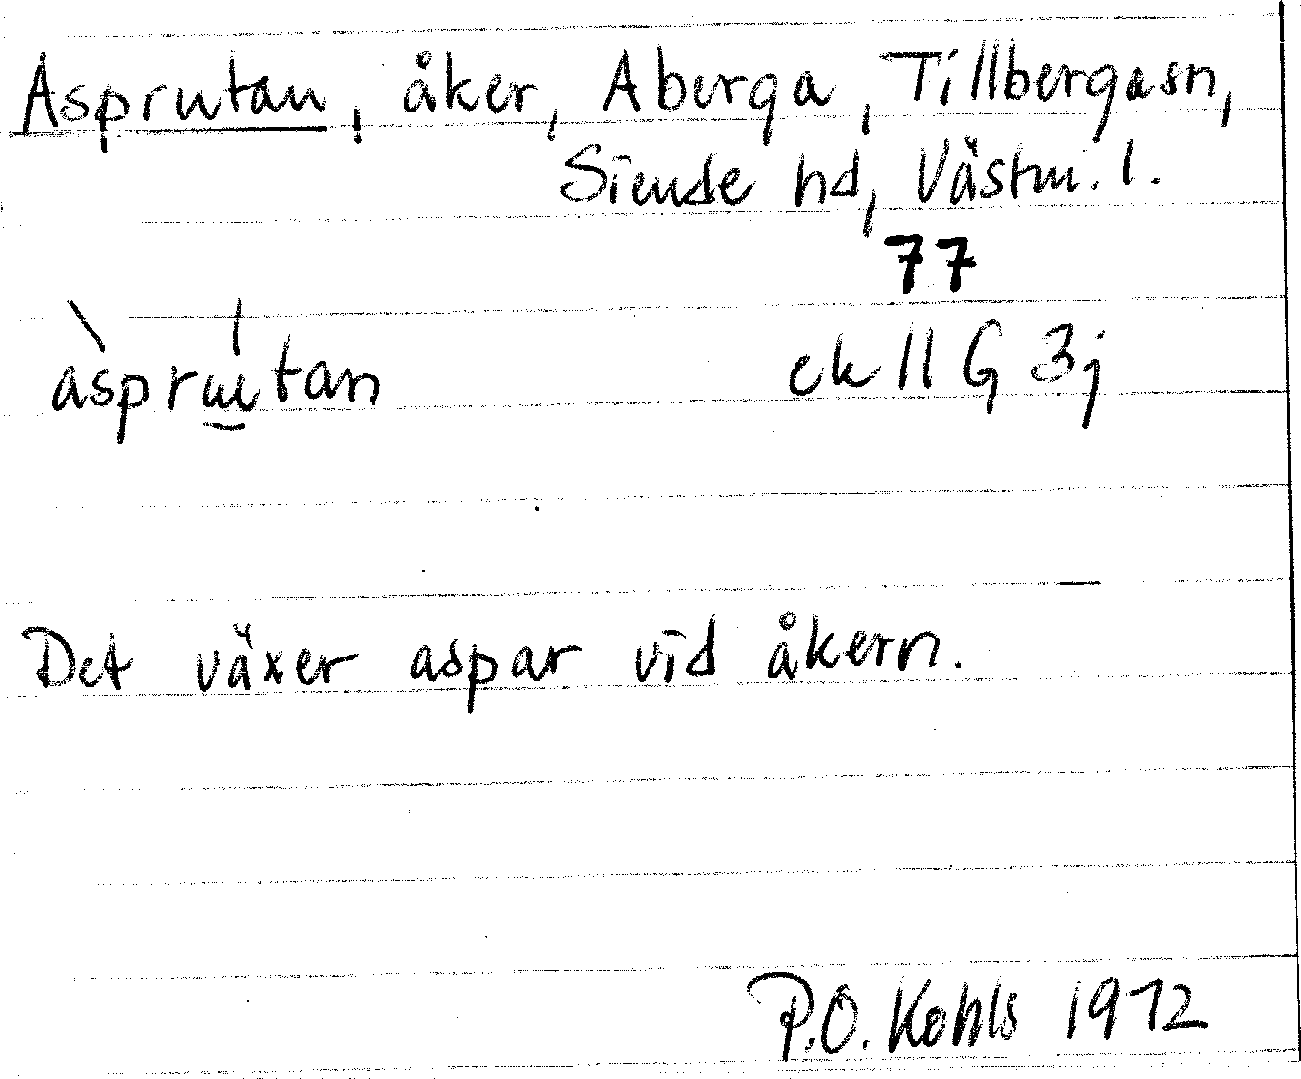 Asprutan, åker, Aberga, Tillbergasn,
Siende hd, Västm. l.
77
àsprɯ̱́tan ek 11 G 3j
Det växer aspar vid åkern.
P.O. Kohls 1972